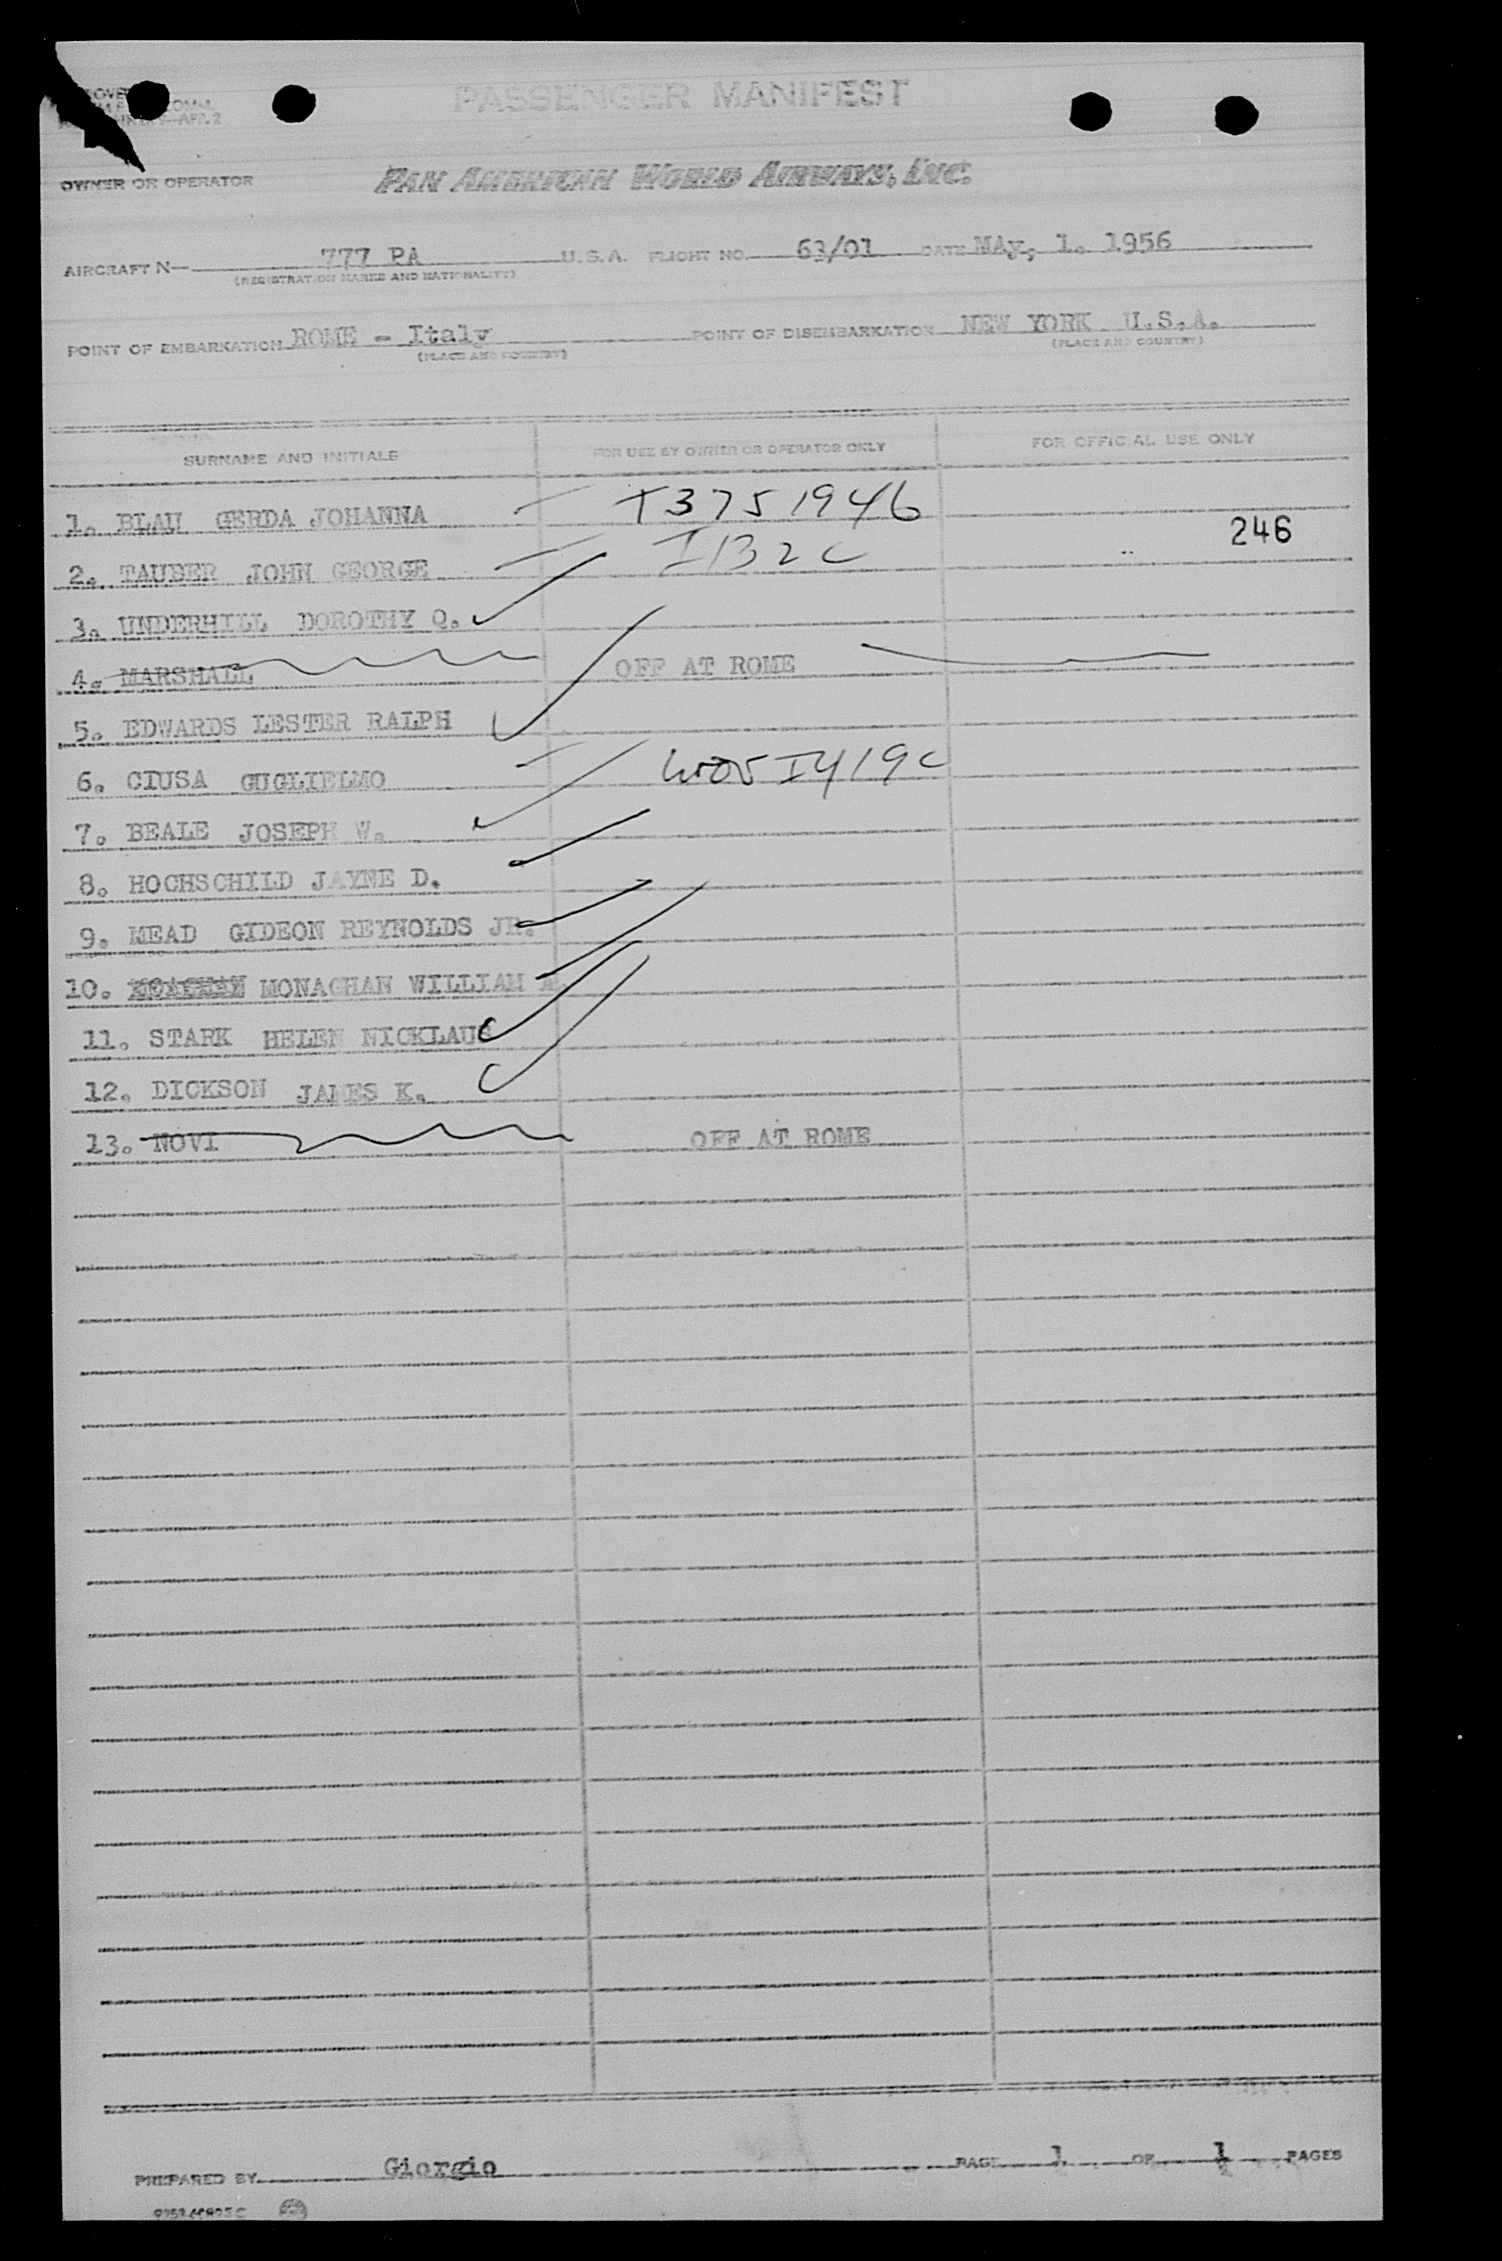 PASSENGER MANIFEST
OWNER OR OPERATOR PAN AMERICAN WORLD AIRWAYS, INC.
AIRCRAFT N— 777 PA U.S.A. FLIGHT NO. 63/01 DATE MAy, 1. 1956
(REGISTRATION MARKS AND NATIONALITY)
POINT OF EMBARKATION ROME - Italy POINT OF DISEMBARKATION NEW YORK U.S.A.
(PLACE AND COUNTRY) (PLACE AND COUNTRY)
SURNAME AND INITIALS FOR USE BY OWNER OR OPERATOR ONLY FOR OFFICIAL USE ONLY
1. BLAU GERDA JOHANNA T3751946
246
2. TAUBER JOHN GEORGE I132C
3. UNDERHILL DOROTHY Q.
4. MARSHALL OFF AT ROME
5. EDWARDS LESTER RALPH
6. CIUSA GUGLIELMO I419C
7. BEALE JOSEPH W.
8. HOCHSCHILD JAYNE D.
9. MEAD GIDEON REYNOLDS JR.
10. MONAGHAN WILLIAM
11. STARK HELEN NICKLAUS
12. DICKSON JAMES K.
13. NOVI OFF AT ROME
PREPARED BY Giorgio PAGE 1 OF 1 PAGES